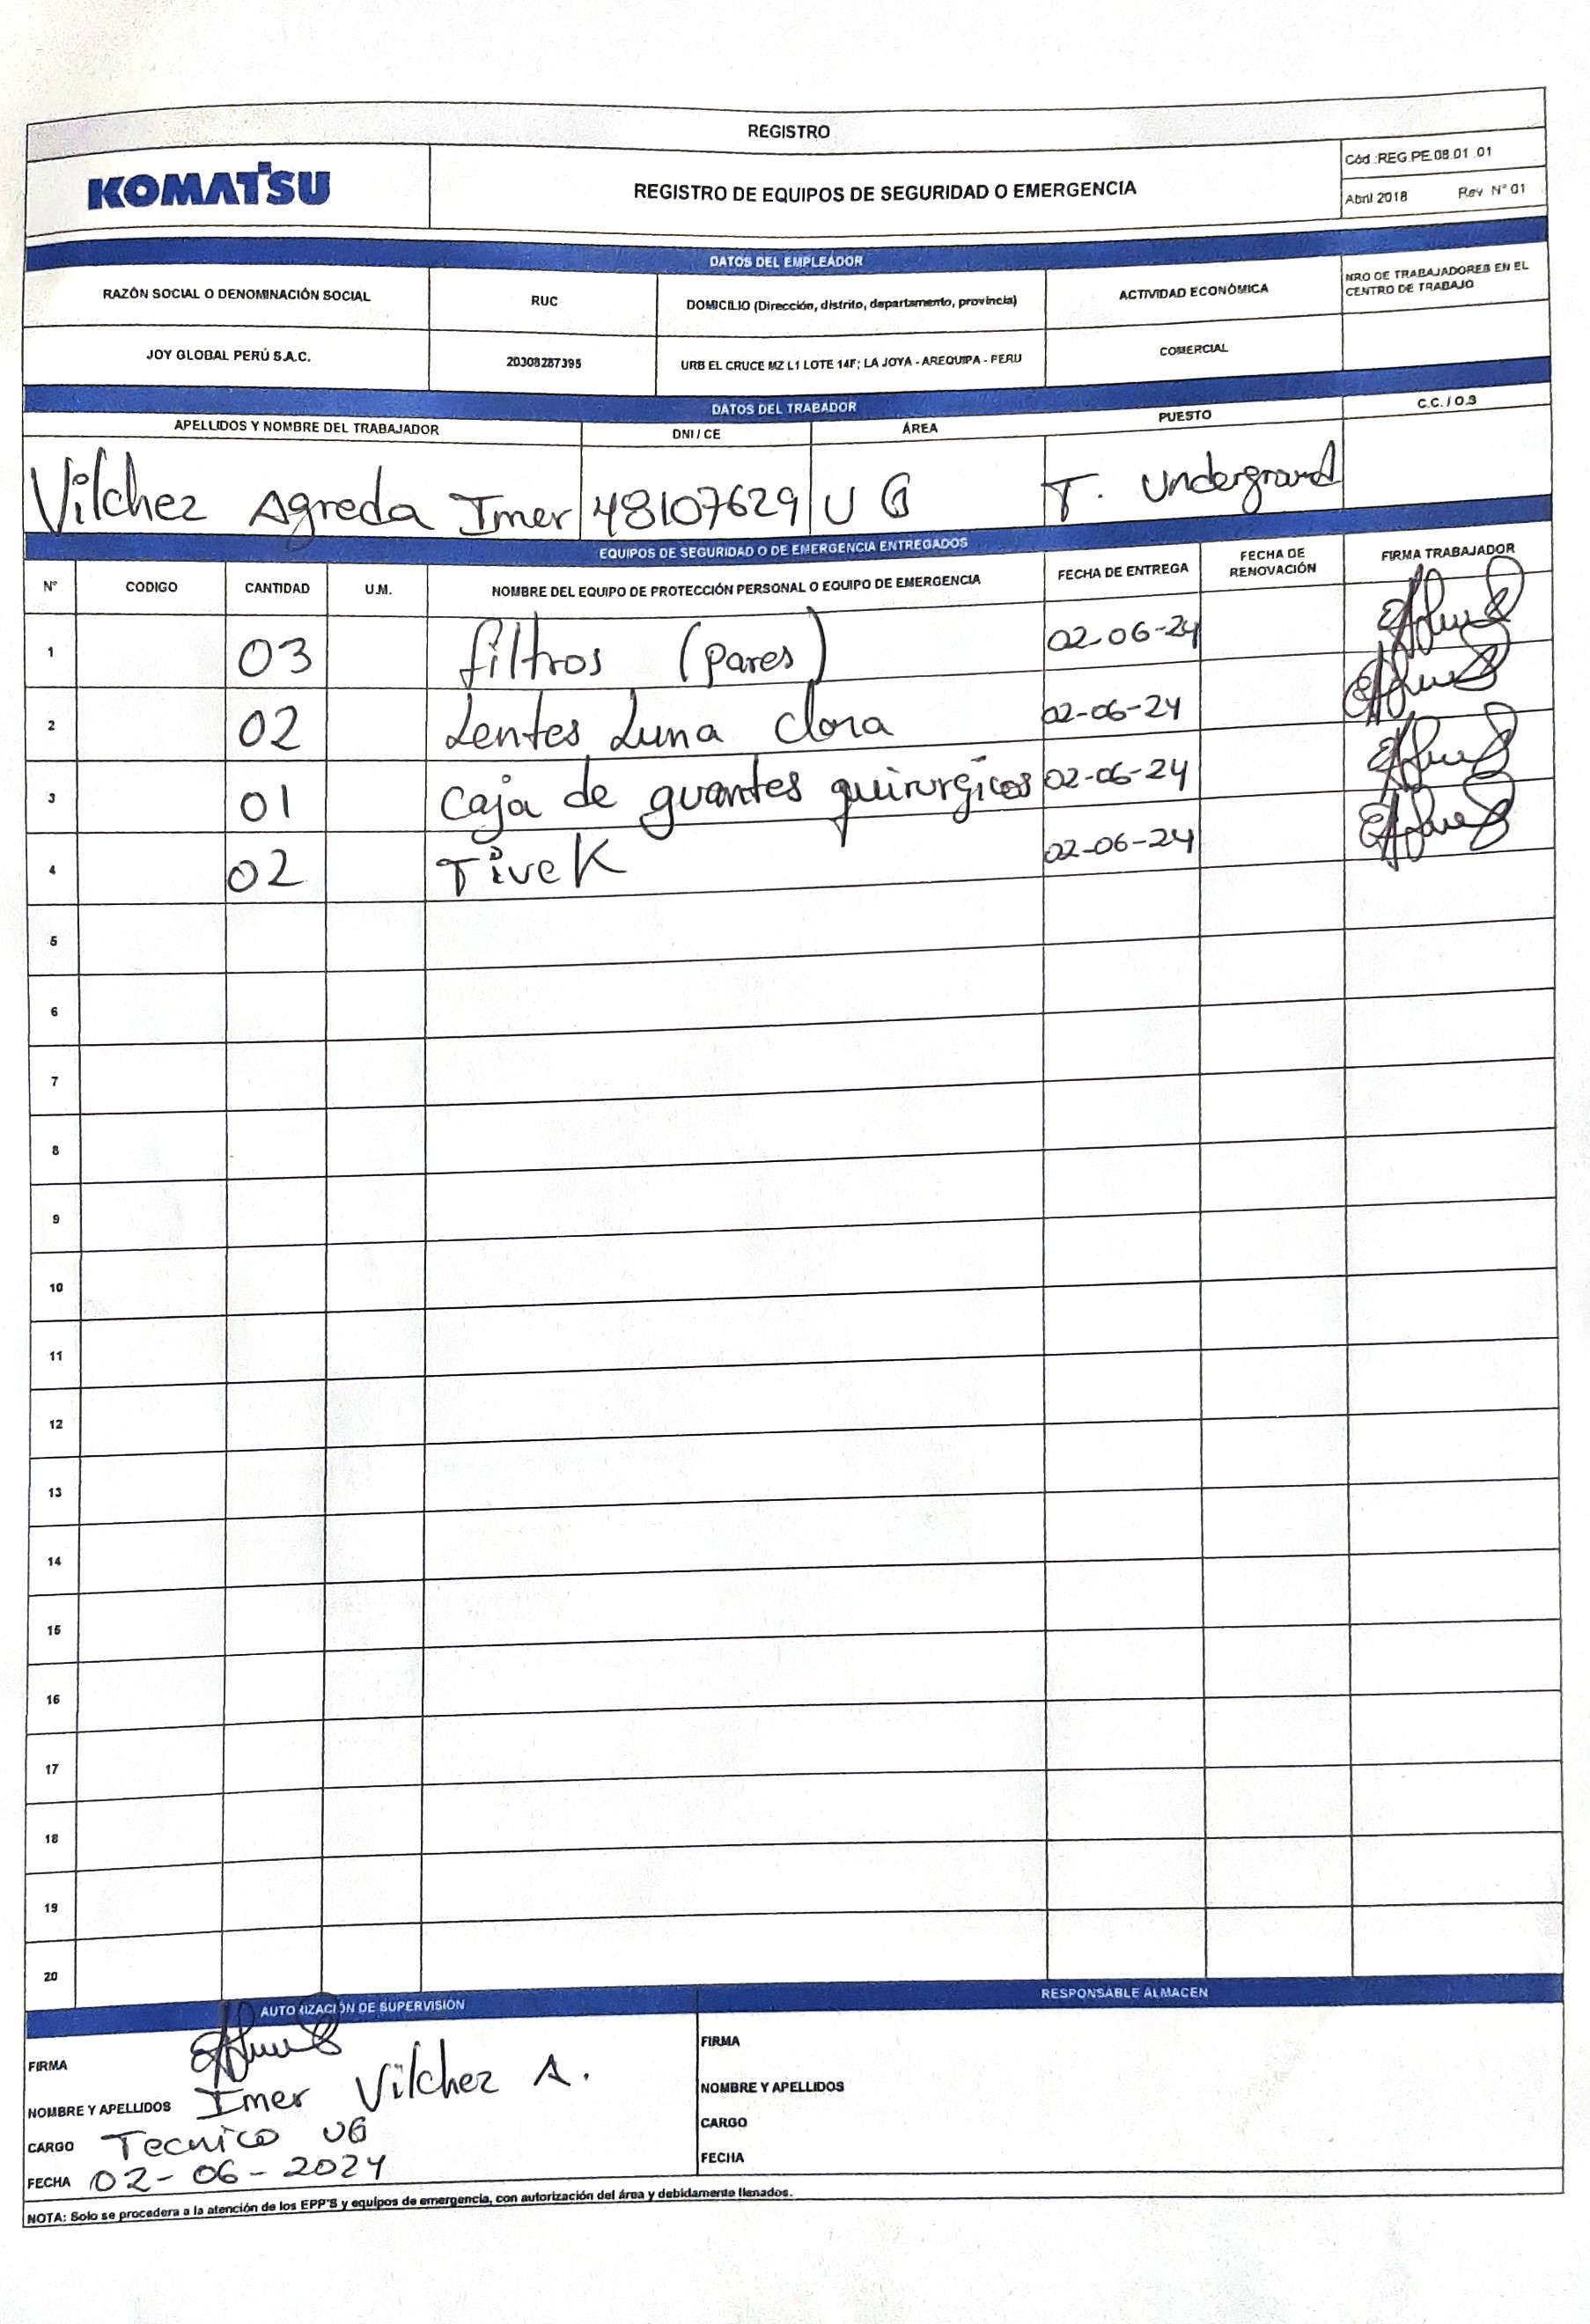 REGISTRO
KOMATSU
REGISTRO DE EQUIPOS DE SEGURIDAD O EMERGENCIA
Cód :REG.PE.08.01 .01
Abril 2018 Rev N° 01
DATOS DEL EMPLEADOR
RAZÓN SOCIAL O DENOMINACIÓN SOCIAL RUC DOMICILIO (Dirección, distrito, departamento, provincia) ACTIVIDAD ECONÓMICA NRO DE TRABAJADORES EN EL
CENTRO DE TRABAJO
JOY GLOBAL PERÚ S.A.C. 20308287395 URB EL CRUCE MZ L1 LOTE 14F; LA JOYA - AREQUIPA - PERU COMERCIAL
DATOS DEL TRABADOR
APELLIDOS Y NOMBRE DEL TRABAJADOR DNI / CE ÁREA PUESTO C.C. / O.S
Vilchez Agreda Imer 48107629 UG T. Underground
EQUIPOS DE SEGURIDAD O DE EMERGENCIA ENTREGADOS
N° CODIGO CANTIDAD U.M. NOMBRE DEL EQUIPO DE PROTECCIÓN PERSONAL O EQUIPO DE EMERGENCIA FECHA DE ENTREGA FECHA DE
RENOVACIÓN FIRMA TRABAJADOR
1 03 filtros (pares) 02-06-24
2 02 Lentes Luna Clara 02-06-24
3 01 Caja de guantes quirurgicos 02-06-24
4 02 Tivek 02-06-24
5
6
7
8
9
10
11
12
13
14
15
16
17
18
19
20
AUTORIZACIÓN DE SUPERVISIÓN
FIRMA
NOMBRE Y APELLIDOS Imer Vilchez A.
CARGO Tecnico UG
FECHA 02-06-2024
RESPONSABLE ALMACEN
FIRMA
NOMBRE Y APELLIDOS
CARGO
FECHA
NOTA: Solo se procedera a la atención de los EPP'S y equipos de emergencia, con autorización del área y debidamente llenados.